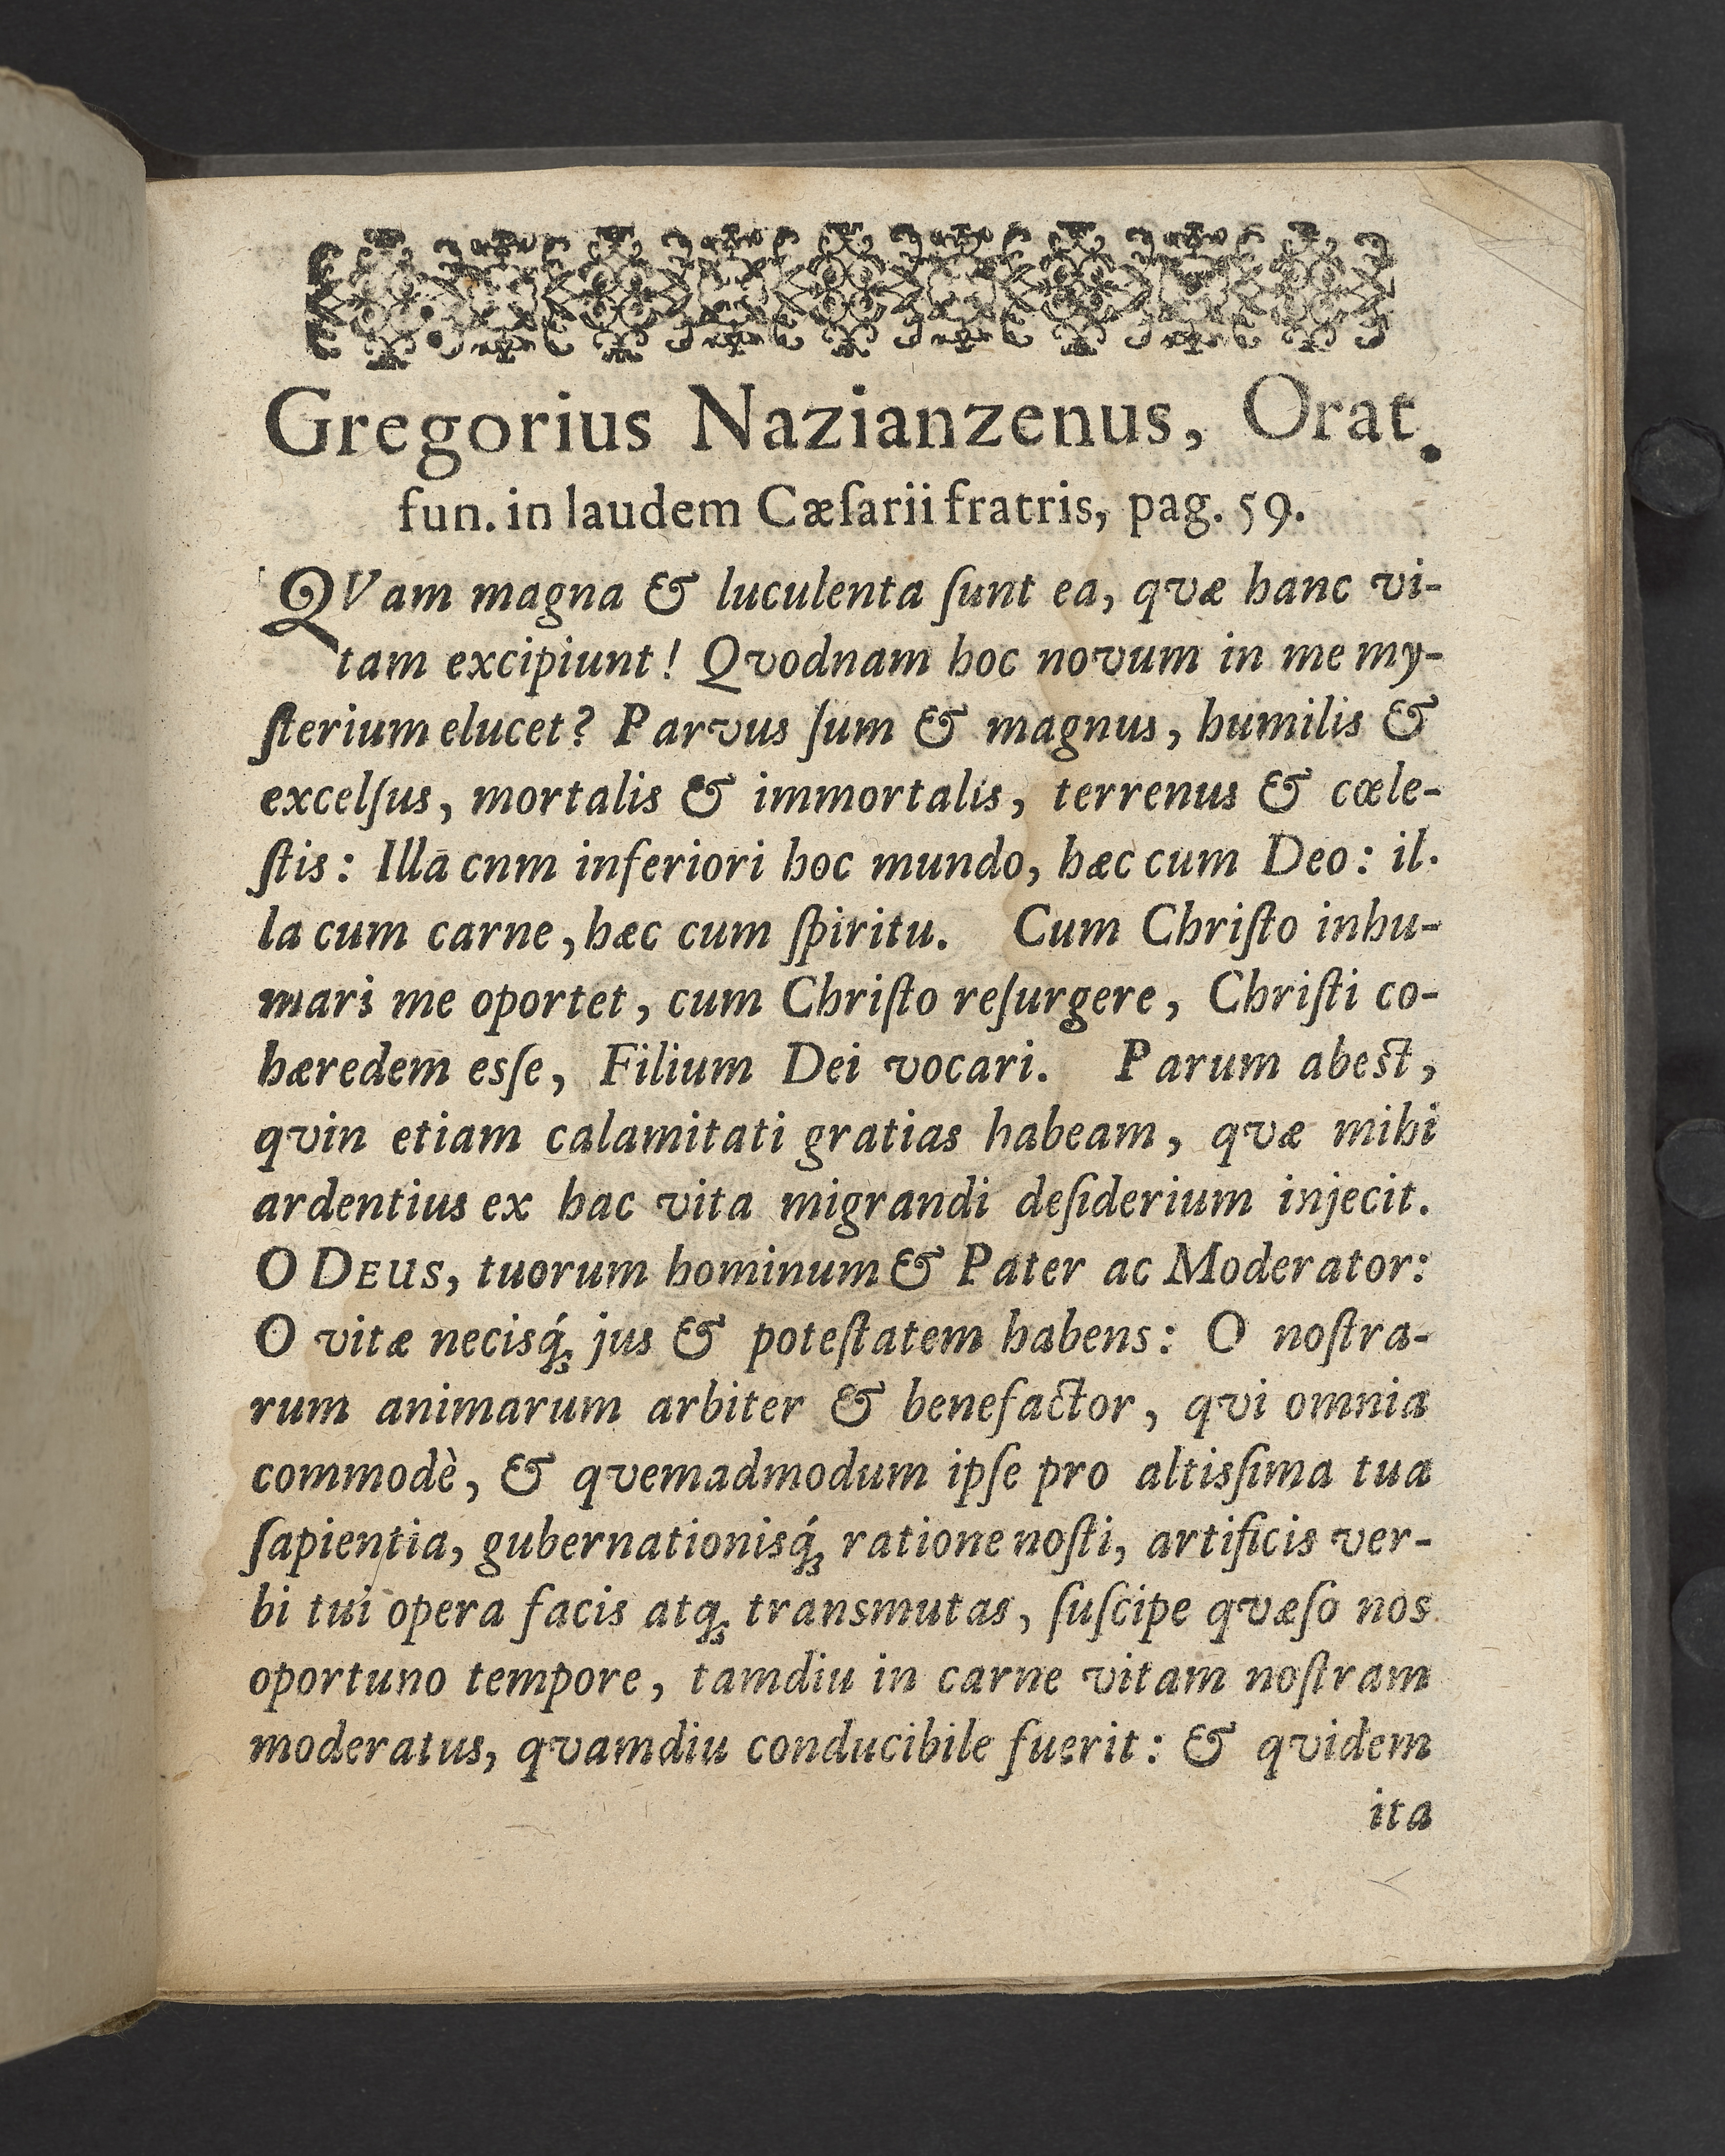 Gregorius Nazianzenus, Orat.
fun. in laudem Cæſarii fratris, pag. 59.
QVam magna & luculenta ſunt ea, qvæ hanc vi-
tam excipiunt! Qvodnam hoc novum in me my-
ſterium elucet? Parvus ſum & magnus, humilis &
excelſus, mortalis & immortalis, terrenus & cœle-
ſtis: Illa cnm inferiori hoc mundo, hæc cum Deo: il-
la cum carne, hæc cum ſpiritu. Cum Chriſto inhu-
mari me oportet, cum Chriſto reſurgere, Chriſti co-
hæredem esſe, Filium Dei vocari. Parum abest,
qvin etiam calamitati gratias habeam, qvæ mihi
ardentius ex hac vita migrandi deſiderium injecit.
O DEUS, tuorum hominum & Pater ac Moderator:
O vitæ necisq́; jus & poteſtatem habens: O noſtra-
rum animarum arbiter & benefactor, qvi omnia
commodè, & qvemadmodum ipſe pro altisſima tua
ſapientia, gubernationisq́; ratione noſti, artificis ver-
bi tui opera facis atq; transmutas, ſuſcipe qvæſo nos
oportuno tempore, tamdiu in carne vitam noſtram
moderatus, qvamdiu conducibile fuerit: & qvidem
ita